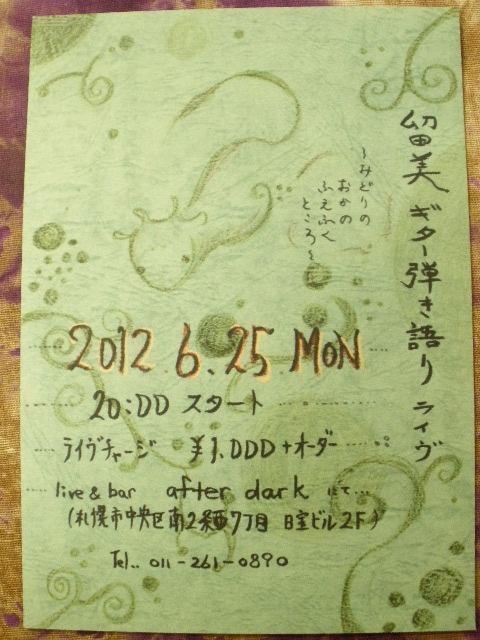 留美 ギター弾き語り ライヴ
〜みどりの
おかの
ふえふく
ところ〜
2012 6.25 MON
20:00 スタート
ライヴチャージ ¥1,000+オーダー
live & bar after dark にて...
(札幌市中央区南2条西7丁目 日宝ビル2F)
Tel.. 011-261-0890